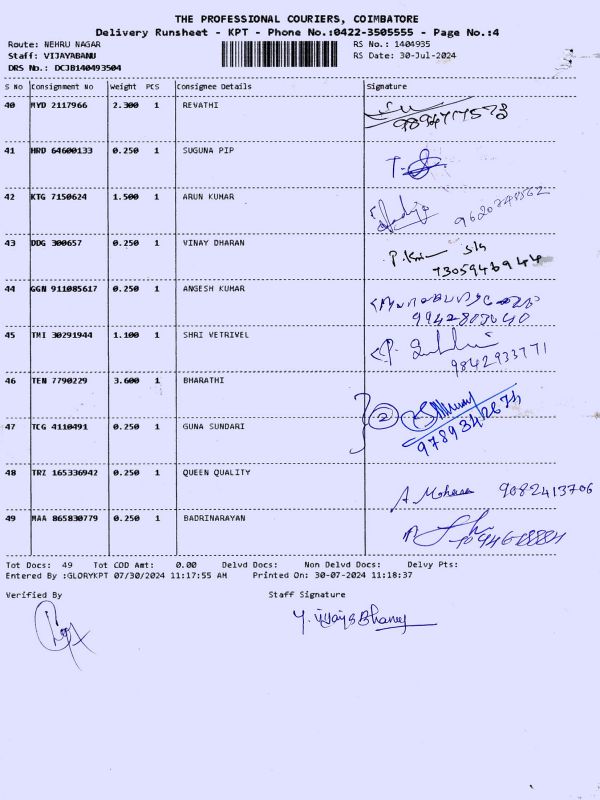 THE PROFESSIONAL COURIERS, COIMBATORE
Delivery Runsheet - KPT - Phone No.:0422-3505555 - Page No.:4
Route: NEHRU NAGAR RS No.: 1404935
Staff: VIJAYABANU RS Date: 30-Jul-2024
DRS No.: DCJB140493504
S No Consignment No Weight PCS Consignee Details Signature
40 MYD 2117966 2.300 1 REVATHI
41 HRD 64600133 0.250 1 SUGUNA PIP
42 KTG 7150624 1.500 1 ARUN KUMAR
43 DDG 300657 0.250 1 VINAY DHARAN
7305946944
44 GGN 911085617 0.250 1 ANGESH KUMAR
45 TMI 30291944 1.100 1 SHRI VETRIVEL
9842933771
46 TEN 7790229 3.600 1 BHARATHI
2
47 TCG 4110491 0.250 1 GUNA SUNDARI
48 TRZ 165336942 0.250 1 QUEEN QUALITY
9082413706
49 MAA 865830779 0.250 1 BADRINARAYAN
Tot Docs: 49 Tot COD Amt: 0.00 Delvd Docs: Non Delvd Docs: Delvy Pts:
Entered By :GLORYKPT 07/30/2024 11:17:55 AM Printed On: 30-07-2024 11:18:37
Verified By Staff Signature